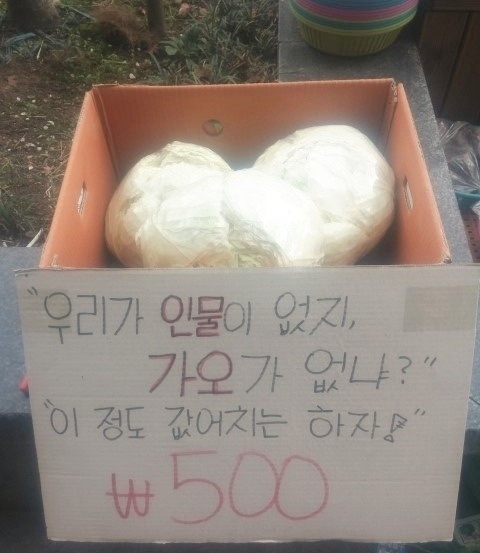 "우리가 인물이 없지,
가오가 없냐?"
"이 정도 값어치는 하자!"
₩500